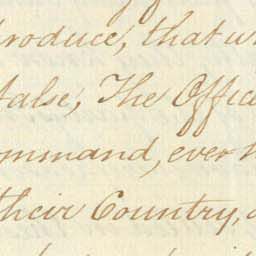 produce, that w
false, The Offic
ommand, ever
their Country,